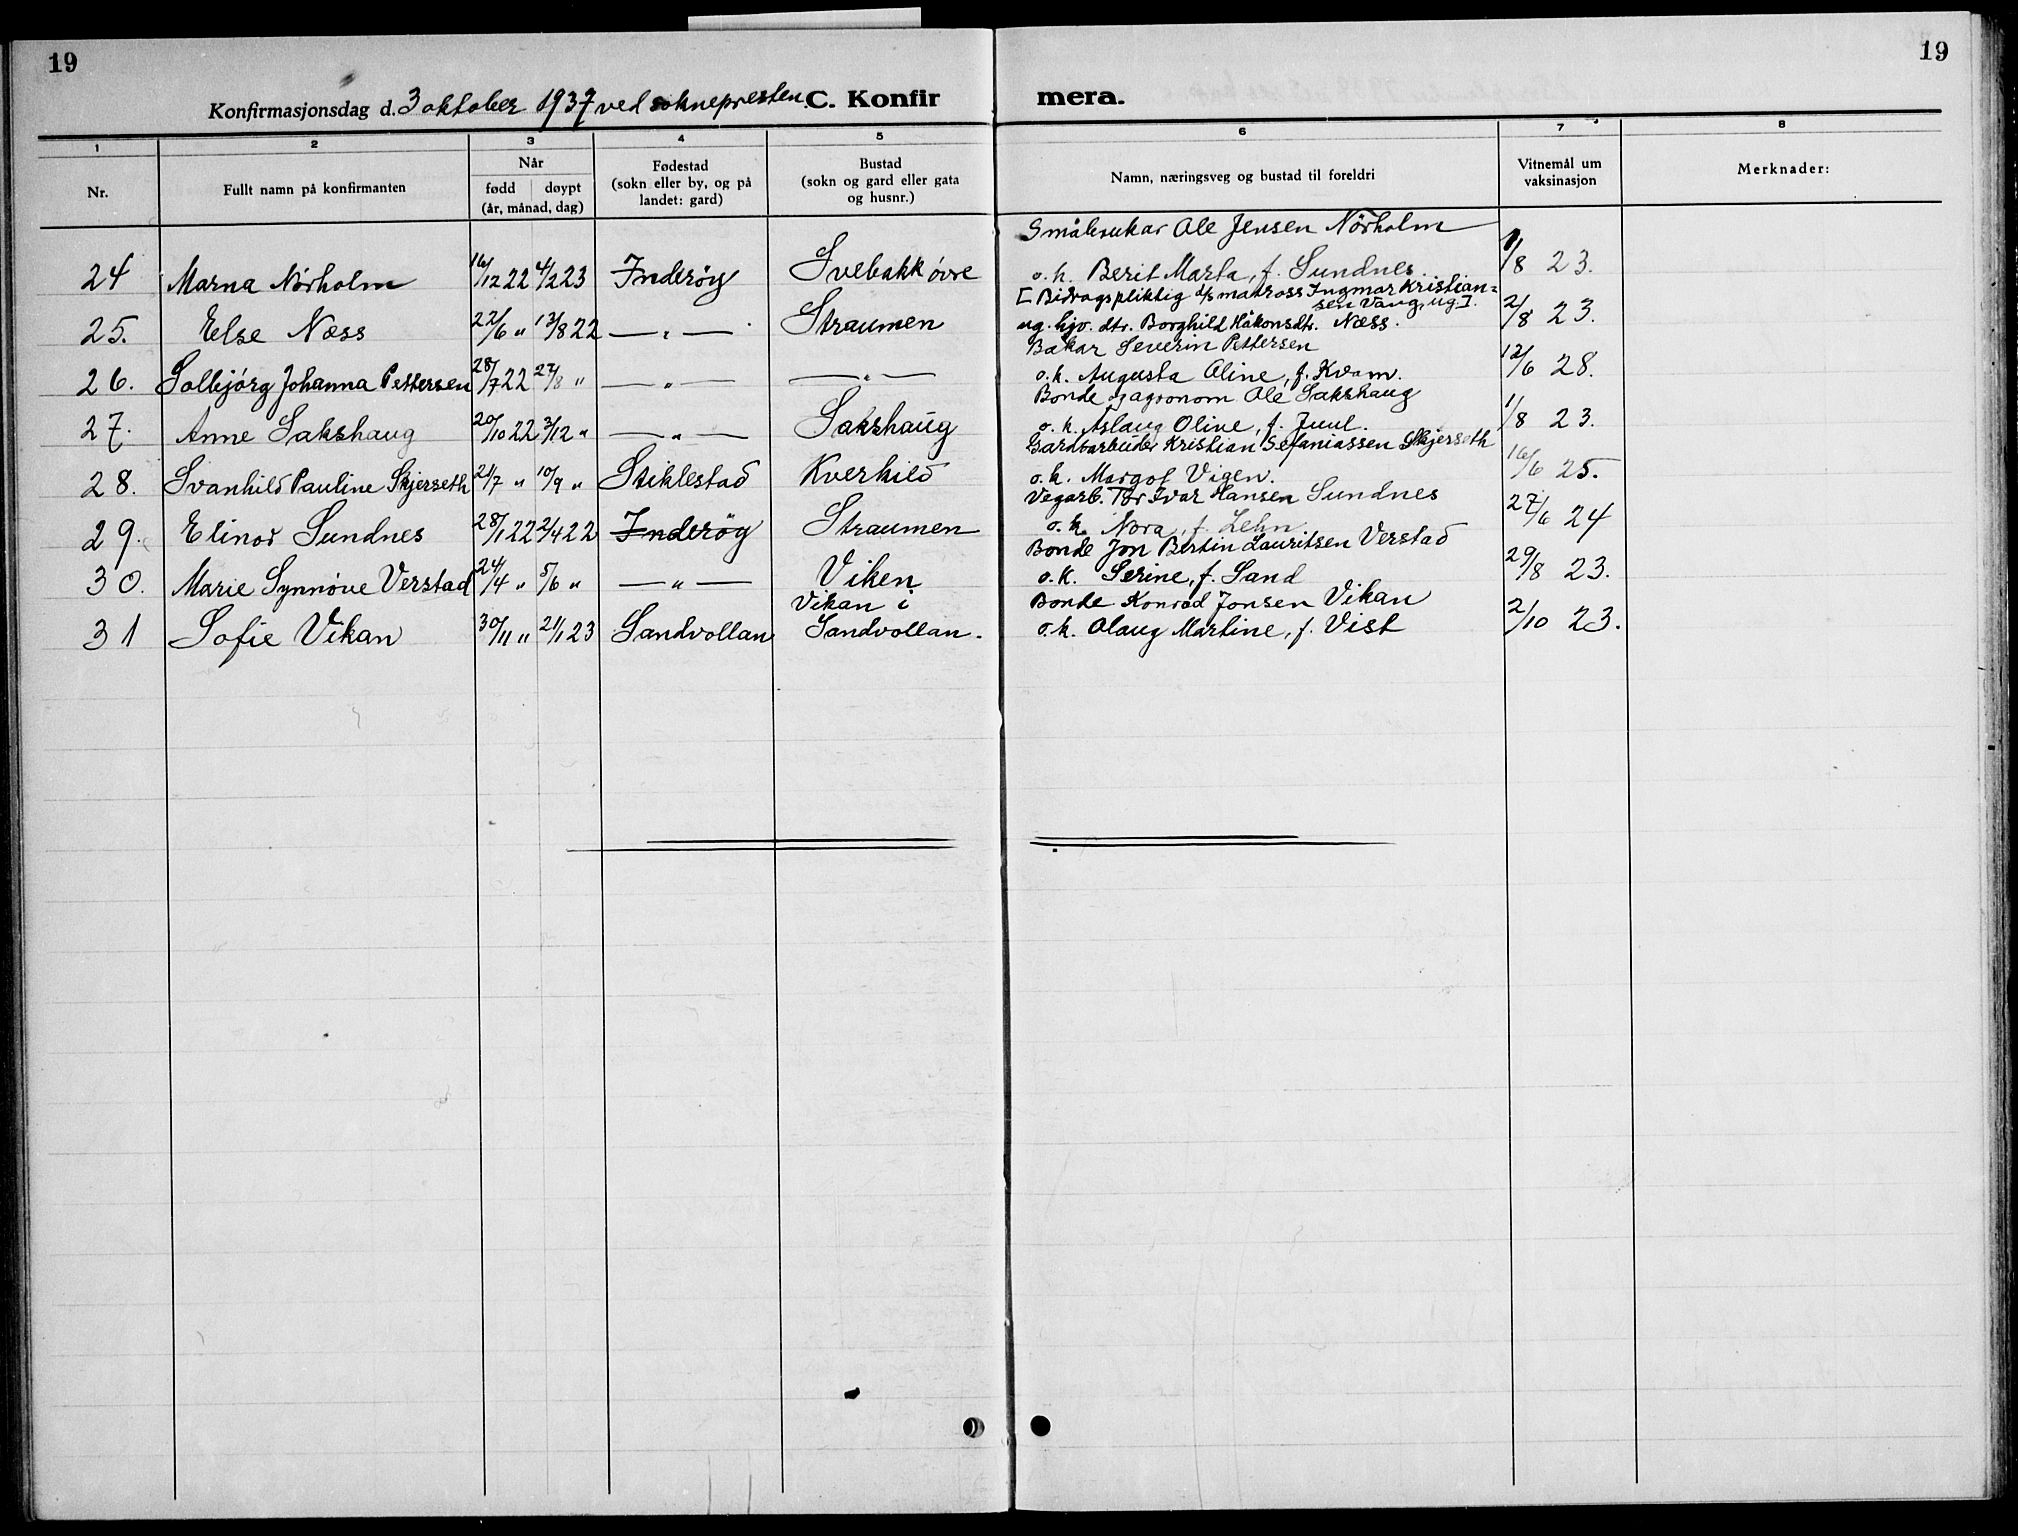 19
19
Konfirmasjonsdag d. 3 oktober 1937 ved soknepresten. C. Konfir mera.
1 2 3 4 5 6 7 8
Nr.
Fullt namn på konfirmanten
Når
fødd døypt
(år, månad, dag)
Fødestad
(sokn eller by, og på
landet: gard)
Bustad
(sokn og gard eller gata
og husnr.)
Namn, næringsveg og bustad til foreldri
Vitnemål um
vaksinasjon
Merknader:
Småbrukar Ole Jensen Nörholm
24 Marna Nörholm 16/12 22 4/2 23 Inderöy Svebakk övre o. h. Berit Marta, f. Sundnes. 1/8 23.
[Bidragspliktig d/s matross Ingmar Kristian=
sen Vang, ug.].
25. Else Næss 22/6 " 13/8 22 — " — Straumen ug. hjv. dtr. Borghild Håkonsdtr. Næss. 2/8 23.
Bakar Severin Pettersen
26. Solbjörg Johanna Pettersen 28/7 22 27/8 " — " — — " — o. h. Augusta Oline, f. Kvam. 12/6 28.
Bonde og agronom Ole Sakshaug
27. Anne Sakshaug 20/10 22 3/12 " — " — Sakshaug o. h. Aslaug Oline, f. Juul. 1/8 23.
Gardsarbeider Kristian Sefaniassen Skjerseth
28. Svanhild Pauline Skjerseth 21/7 " 10/9 " Stiklestad Kverkild o. h. Margot Vigen. 16/6 25.
Vegarb. Tor Ivar Hansen Sundnes
29. Elinor Sundnes 28/1 22 2/4 22 Inderöy Straumen o. h. Nora, f. Lehn 27/6 24
Bonde Jon Bertin Lauritsen Verstad
30. Marie Synnöve Verstad 24/4 " 5/6 " — " — Viken o. h. Serine, f. Sand 29/8 23.
Vikan i Bonde Konrad Jonsen Vikan
31 Sofie Vikan 30/11 " 21/1 23 Sandvollan Sandvollan. o. h. Olaug Martine, f. Vist 2/10 23.